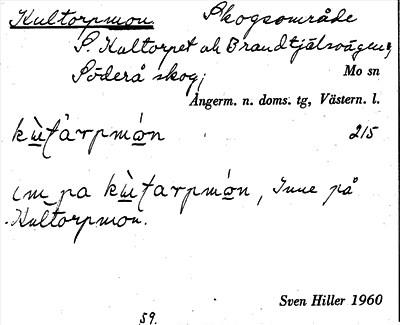 Kultorpmon Skogsområde
S. Kultorpet ok Brandtjälsvägen,
Söderå skog;
Mo sn
Ångerm. n. doms. tg, Västern. l.
kùtàrpmón 215
ım pa kùtarpmón, Inne på
Kultorpmon.
Sven Hiller 1960
59.